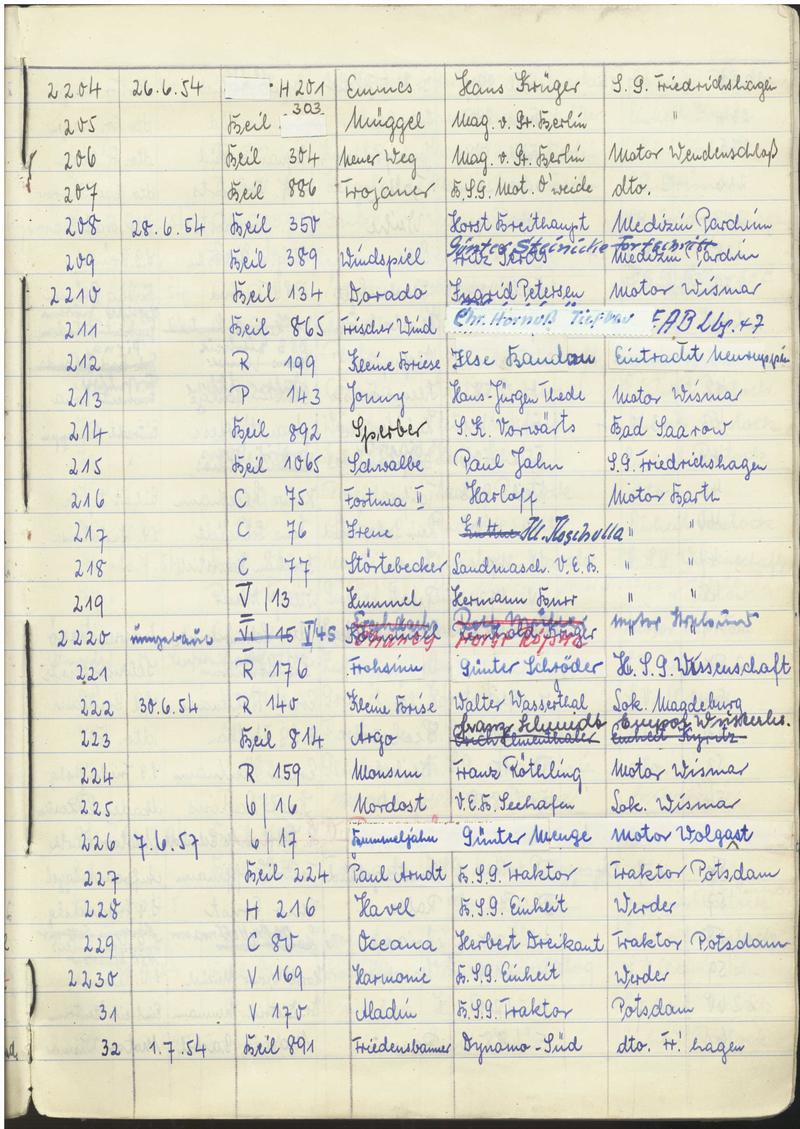 2204 26.6.54 H 201 Emmes Hans Krüger S.G. Friedrichshagen
205 Beil 303 Müggel Mag. v. Gr. Berlin "
206 Beil 304 Neuer Weg Mag. v. Gr. Berlin Motor Wendenschloß
207 Beil 886 Trojaner B.S.G. Mot. O'weide dto.
208 28.6.54 Beil 350 Horst Breithaupt Medizin Parchim
Günter Steinicke Fortschritt
209 Beil 389 Windspiel Fritz Medizin Parchim
2210 Beil 134 Dorado Ingrid Petersen Motor Wismar
211 Beil 865 Frischer Wind Chr. Tiefbau
212 R 199 Kleine Briese Ilse Eintracht Neuruppin
213 P 143 Jonny Hans-Jürgen Thede Motor Wismar
214 Beil 892 Sperber S.K. Vorwärts Bad Saarow
215 Beil 1065 Schwalbe Paul Jahn S.G. Friedrichshagen
216 C 75 Fortuna II Harloff Motor Barth
217 C 76 Irene " "
218 C 77 Störtebecker Landmasch. V.E.B. " "
219 V/13 Hummel Hermann " "
2220 umgebaut VI/15 V/45 Horst Motor Stralsund
221 R 176 Frohsinn Günter Schröder H.S.G. Wissenschaft
222 30.6.54 R 140 Kleine Brise Walter Wasserthal Lok. Magdeburg
Franz Schmidt Empor
223 Beil 814 Argo Erich Einheit Kyritz
224 R 159 Monsun Franz Köthling Motor Wismar
225 6/16 Nordost V.E.B. Seehafen Lok. Wismar
226 7.6.57 6/17 Günter Menge Motor Wolgast
227 Beil 224 Paul Arndt B.S.G. Traktor Traktor Potsdam
228 H 216 Havel B.S.G. Einheit Werder
229 C 80 Oceana Herbert Dreikant Traktor Potsdam
2230 V 169 Harmonie B.S.G. Einheit Werder
31 V 170 Aladin B.S.G. Traktor Potsdam
32 1.7.54 Beil 891 Friedensbanner Dynamo-Süd dto. Fr'hagen